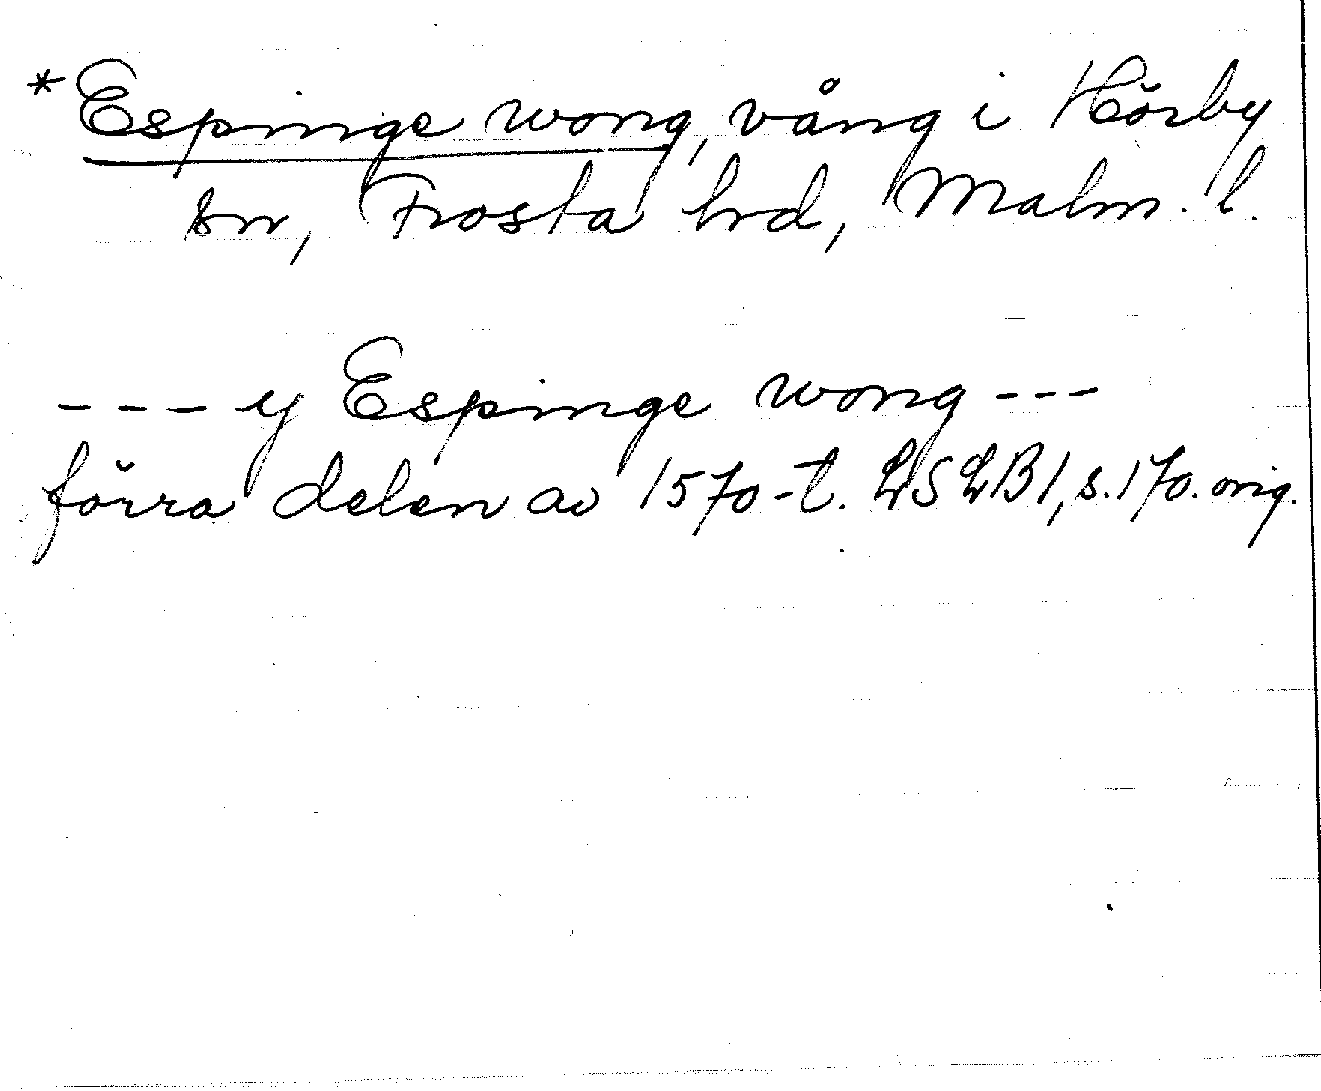 *Espinge wong, vång i Hörby
sn, Frosta hrd, Malm. l.
--- y Espinge wong ---
förra delen av 1570-t. LSLB1, s. 170. orig.